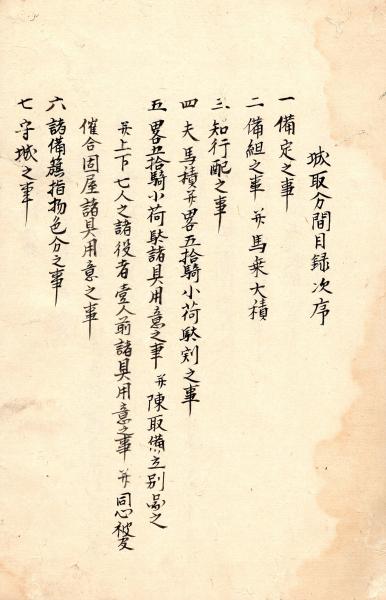 城取分間目録次序
一 備定之事
二 備組之事 并馬乗大積
三 知行配之事
四 夫馬積并畧五拾騎小荷駄刻之事
五 畧五拾騎小荷駄諸具用意之事 并陳取備立別畧之
并上下七人之諸役者壹人前諸具用意之事 并同心被
催合固屋諸具用意之事
六 諸備籏指物色分之事
七 守城之事